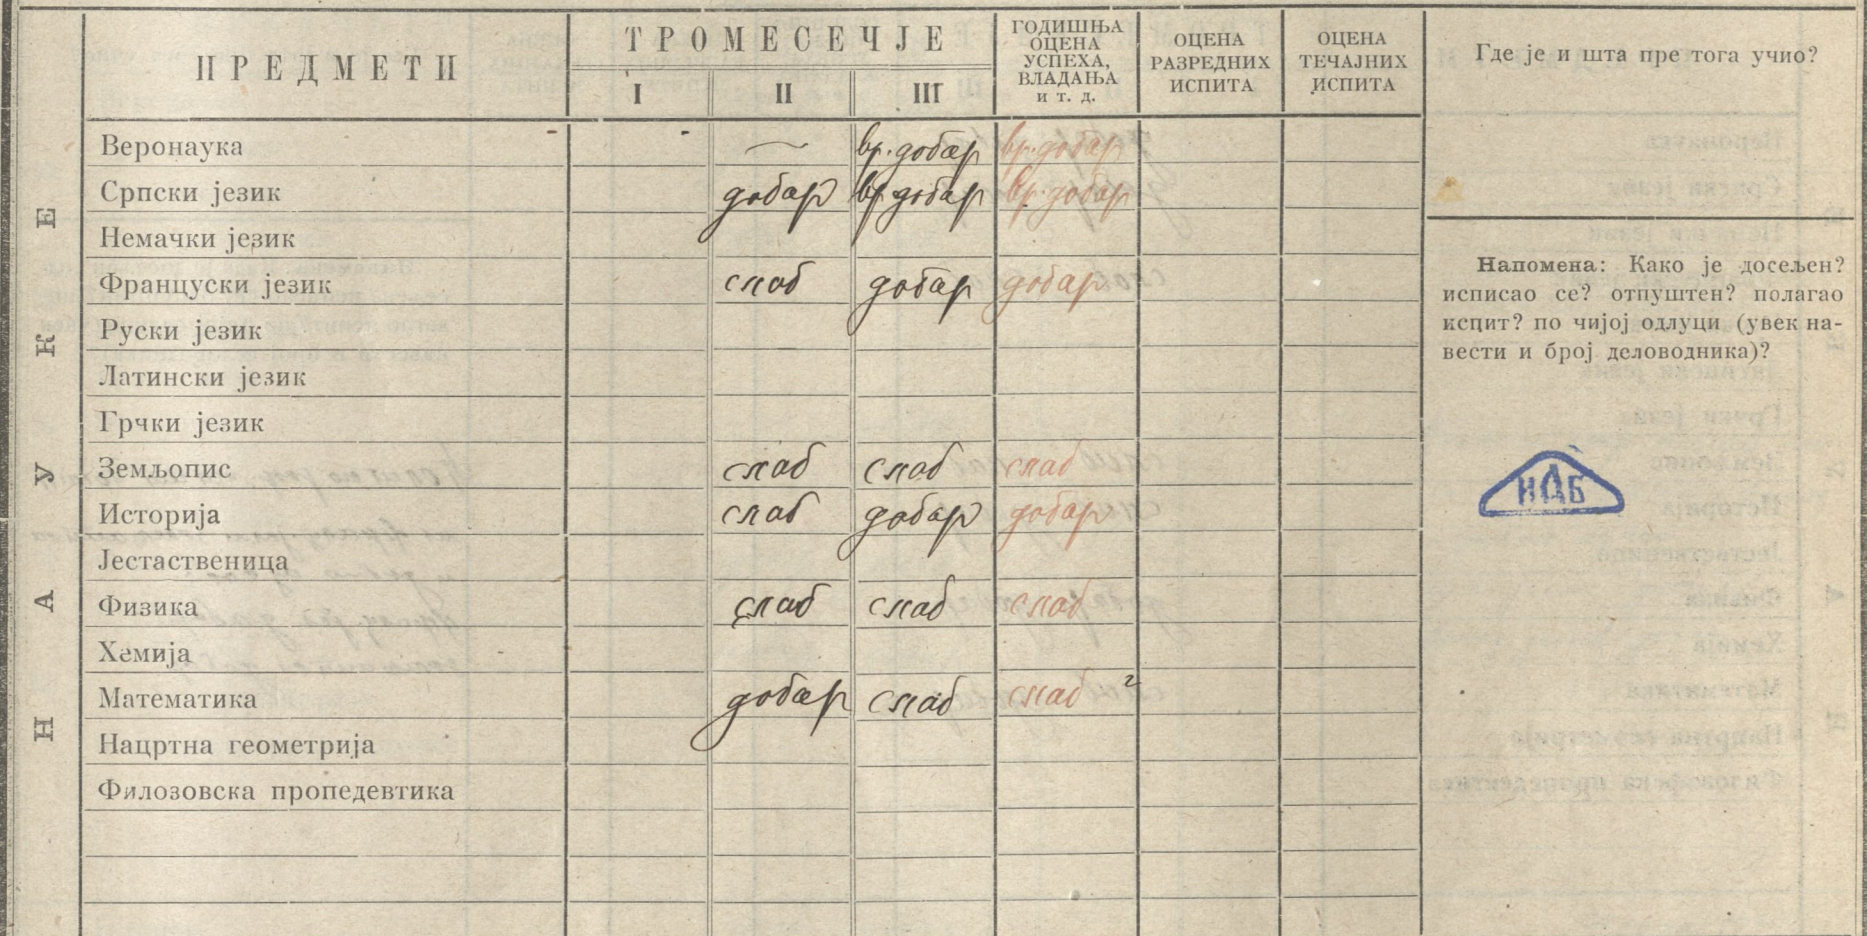 ПРЕДМЕТИ
ТРОМЕСЕЧЈЕ
I II III
ГОДИШЊА
ОЦЕНА
УСПЕХА,
ВЛАДАЊА
и т. д.
ОЦЕНА
РАЗРЕДНИХ
ИСПИТА
ОЦЕНА
ТЕЧАЈНИХ
ИСПИТА
Где је и шта пре тога учио?
НАУКЕ
Веронаука — вр. добар вр. добар
Српски језик добар вр. добар вр. добар
Немачки језик
Француски језик слаб добар добар
Руски језик
Латински језик
Грчки језик
Земљопис слаб слаб слаб
Историја слаб добар добар
Јестаственица
Физика слаб слаб слаб
Хемија
Математика добар слаб слаб 2
Нацртна геометрија
Филозовска пропедевтика
Напомена: Како је досељен?
исписао се? отпуштен? полагао
испит? по чијој одлуци (увек на-
вести и број деловодника)?